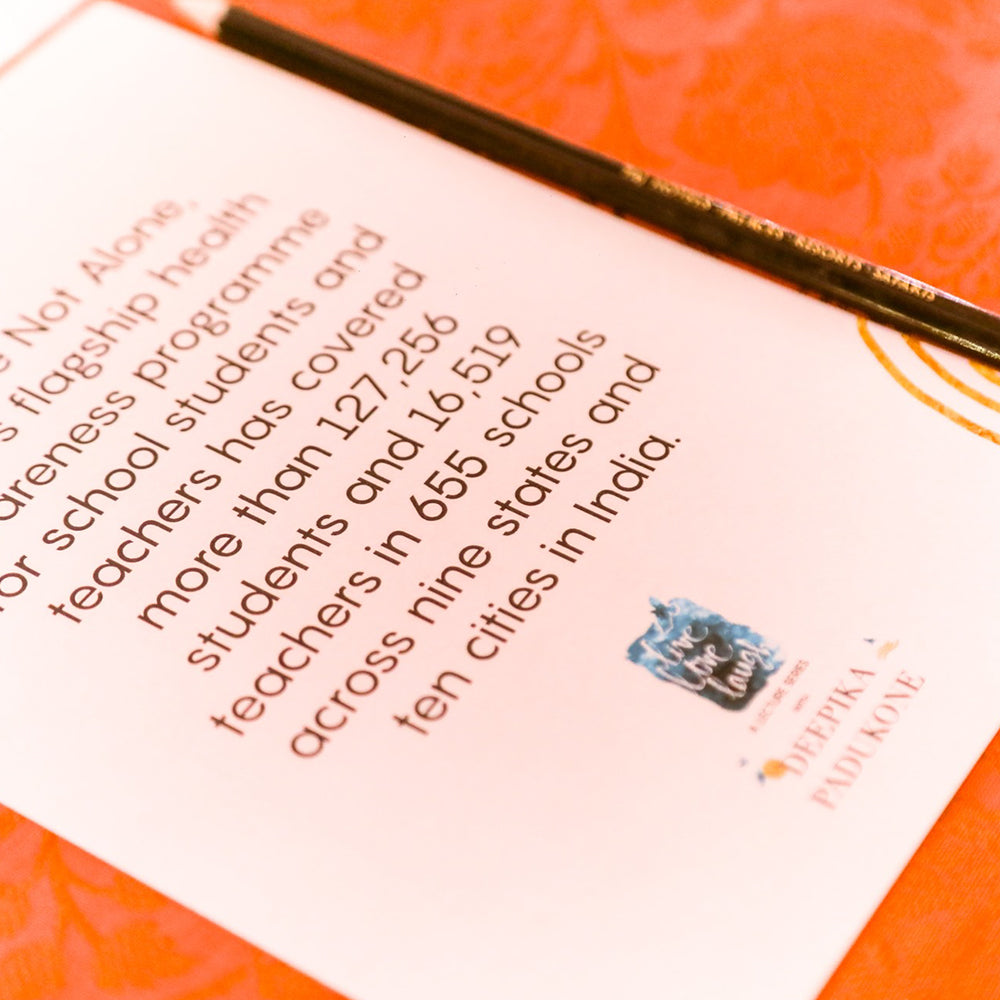 Not Alone,
flagship health
programme
school students and
teachers has covered
more than 127,256
students and 16,519
teachers in 655 schools
across nine states and
ten cities in India.
live
love
laugh
A LECTURE SERIES
WITH
DEEPIKA
PADUKONE
RESORTS SAFARIS